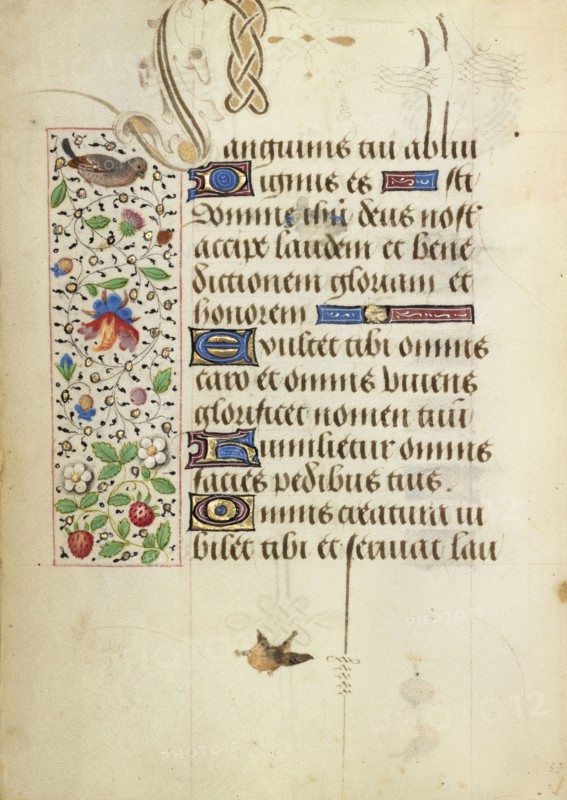 anguinis tui ablui
Dignus es sti
Domine ihū deus nost̄
accipe laudem et bene
dictionem gloriam et
honorem
Exultet tibi omnis
caro et omnis viuens
glorificet nomen tuū
Humilietur omnis
facies pedibus tuis.
Omnis creatura iu
bilet tibi et seruiat lau
PHOTO12